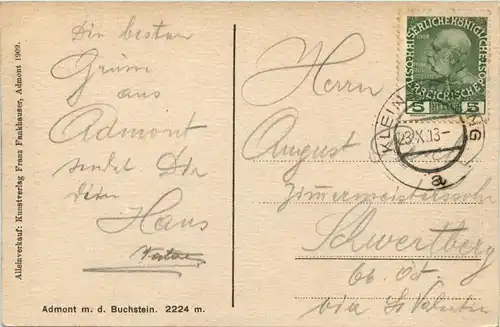 Alleinverkauf: Kunstverlag Franz Fankhauser, Admont 1909.
Die besten
Grüsse
aus
Admont
sendet Dir
dein
Hans
Admont m. d. Buchstein. 2224 m.
Herrn
August
Zimmermeisterssohn
Schwertberg
ob. Öst.
via St Valentin
KAISERLICHE KÖNIGLICHE
ÖSTERREICHISCHE
5 HELLER 5
1908
KLEIN
23 X 13
a